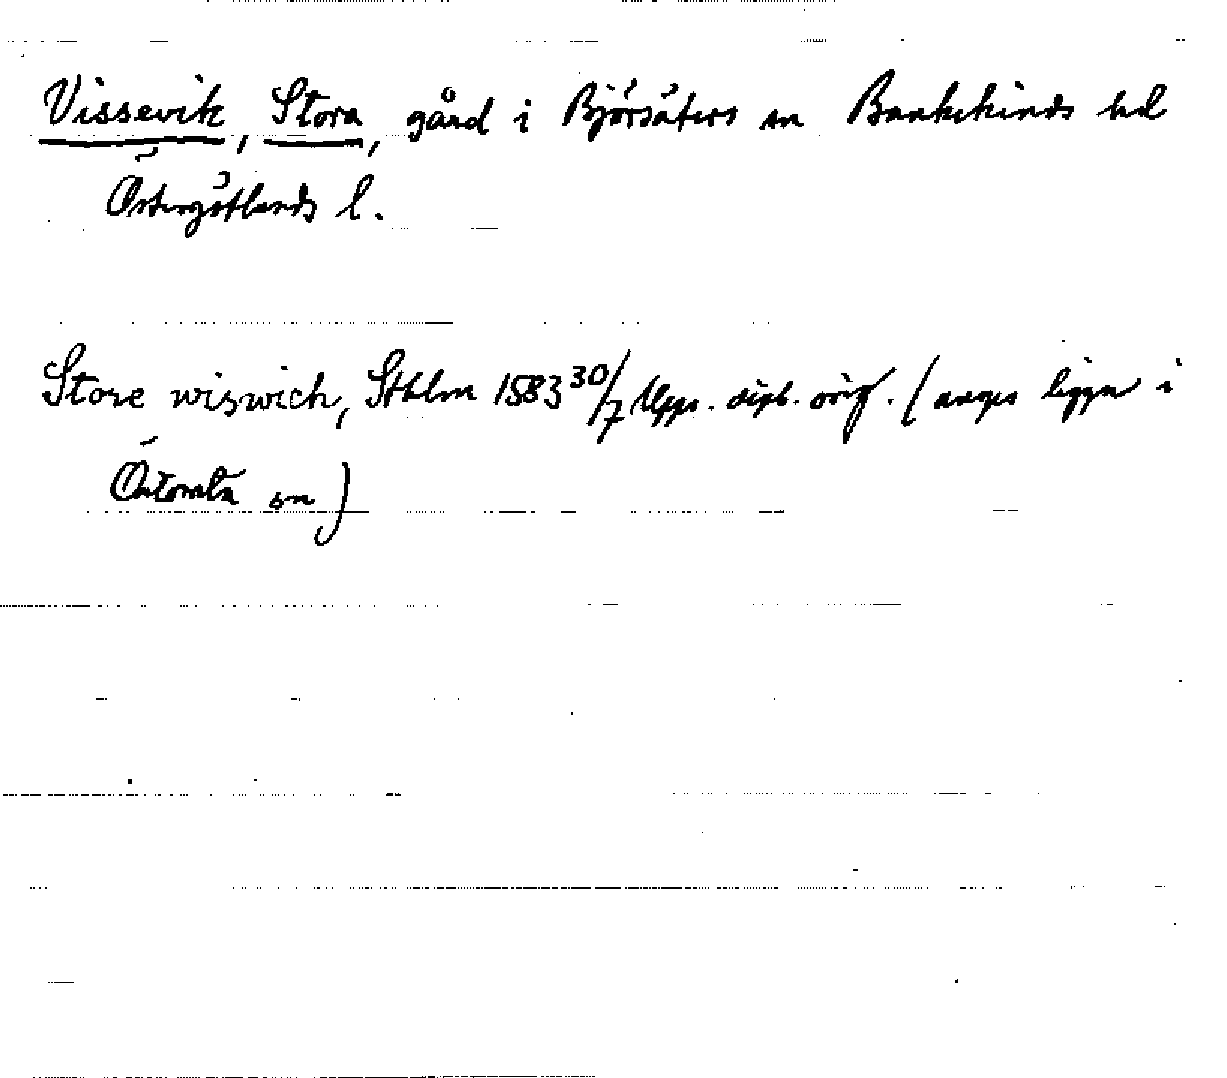 Vissevik, Stora, gård i Björsäters sn Bankekinds hd
Östergötlands l.
Store wiswich, Sthlm 1583 30/7 Upps. dipl. orig. (anges ligga i
sn)